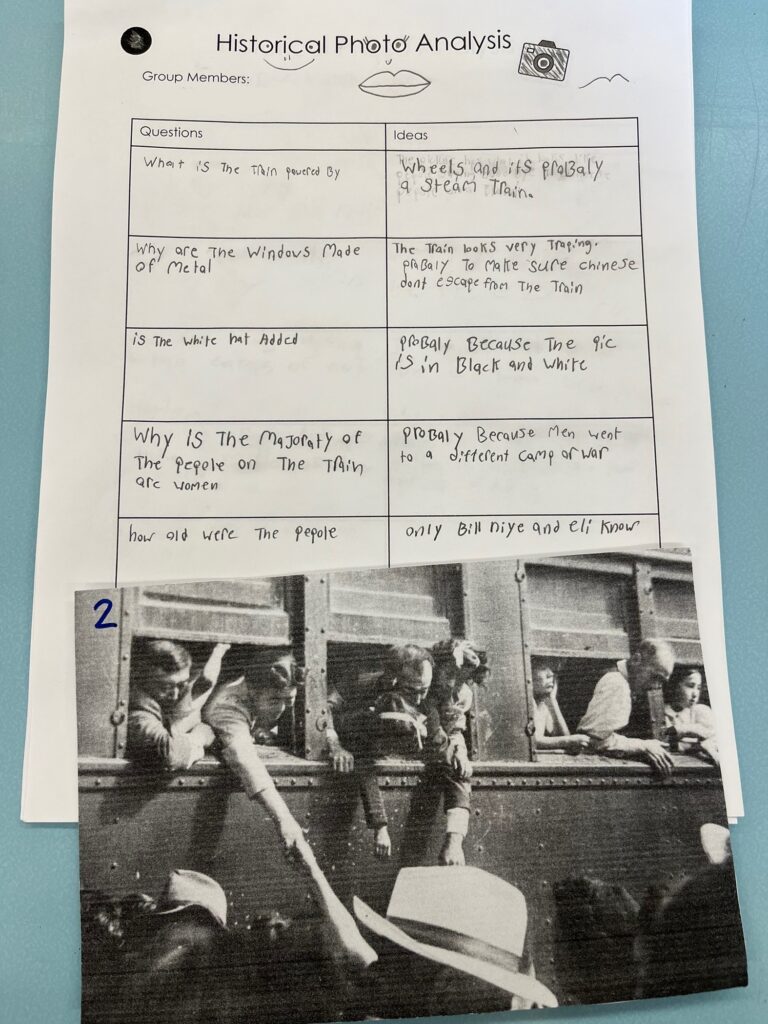 Historical Photo Analysis
Group Members:
Questions
Ideas
What is The Train powered By
Wheels and its proBaly
a Steam Train.
Why are The Windows Made
of Metal
The Train looks very Traping.
proBaly To Make sure chinese
dont escape from The Train
is The white hat Added
proBaly Because The pic
is in Black and white
Why is The Majoraty of
The pepole on The Train
are women
proBaly Because Men went
to a different camp or war
how old were The pepole
only Bill niye and eli know
2